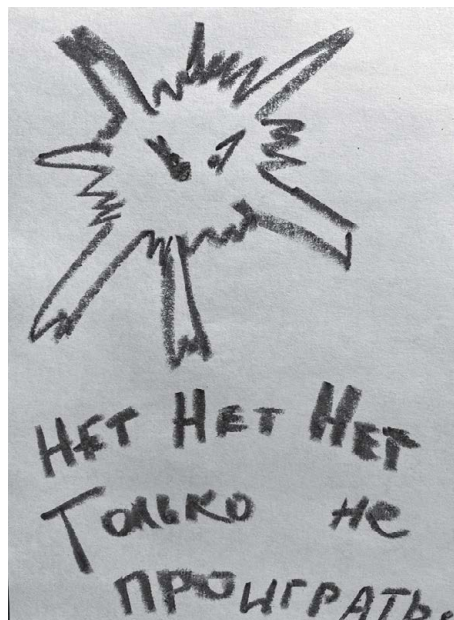 НЕТ НЕТ НЕТ
Только не
ПРОИГРАТЬ.